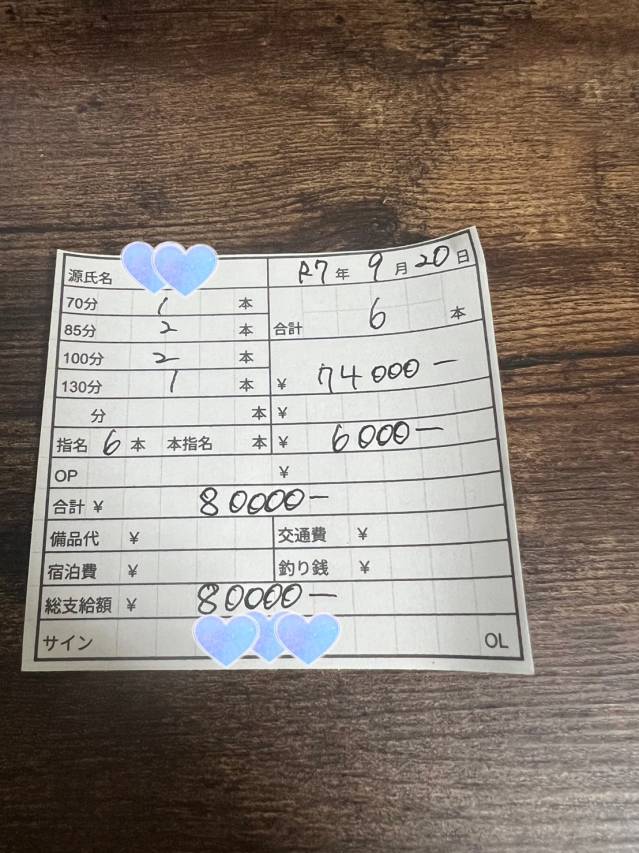 源氏名 R7年 9月 20日
70分 1 本
85分 2 本 合計 6 本
100分 2 本
130分 1 本 ¥ 74000-
分 本 ¥
指名 6 本 本指名 本 ¥ 6000-
OP ¥
合計 ¥ 80000-
備品代 ¥ 交通費 ¥
宿泊費 ¥ 釣り銭 ¥
総支給額 ¥ 80000-
サイン OL